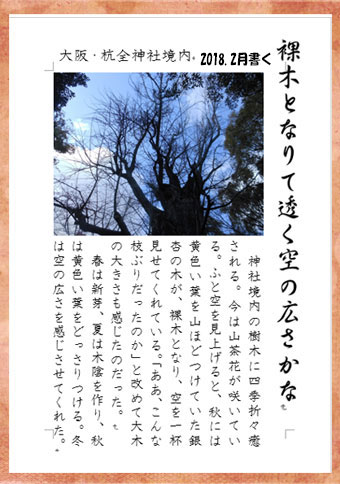 裸木となりて透く空の広さかな。
大阪・杭全神社境内。 2018.2月書く
神社境内の樹木に四季折々癒
される。今は山茶花が咲いてい
る。ふと空を見上げると、秋には
黄色い葉を山ほどつけていた銀
杏の木が、裸木となり、空を一杯
見せてくれている。「ああ、こんな
枝ぶりだったのか」と改めて大木
の大きさも感じたのだった。
春は新芽、夏は木陰を作り、秋
は黄色い葉をどっさりつける。冬
は空の広さを感じさせてくれた。